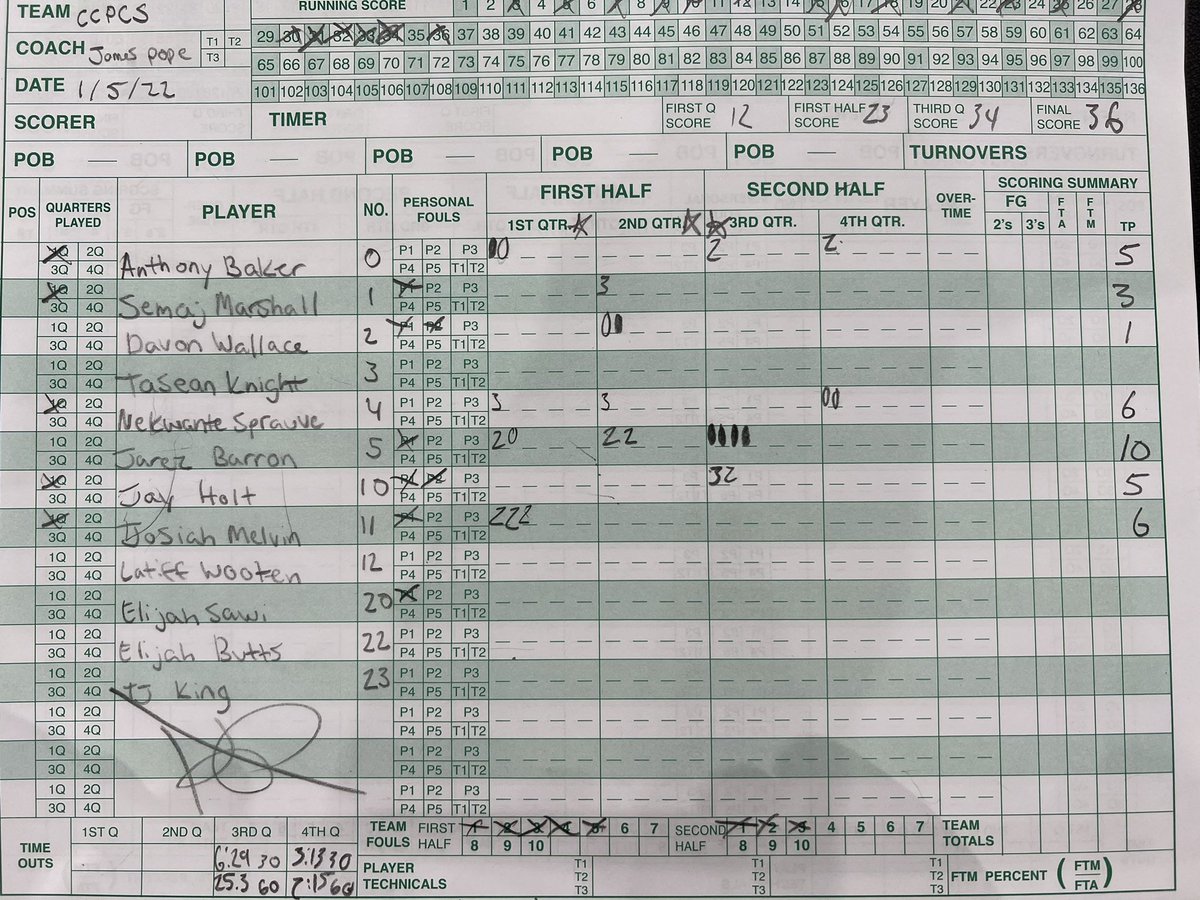 TEAM CCPCS RUNNING SCORE 1 2 3 4 5 6 7 8 9 10 11 12 13 14 15 16 17 18 19 20 21 22 23 24 25 26 27 28
COACH James Pope T1 T2 T3 29 30 31 32 33 34 35 36 37 38 39 40 41 42 43 44 45 46 47 48 49 50 51 52 53 54 55 56 57 58 59 60 61 62 63 64
65 66 67 68 69 70 71 72 73 74 75 76 77 78 79 80 81 82 83 84 85 86 87 88 89 90 91 92 93 94 95 96 97 98 99 100
DATE 1/5/22 101 102 103 104 105 106 107 108 109 110 111 112 113 114 115 116 117 118 119 120 121 122 123 124 125 126 127 128 129 130 131 132 133 134 135 136
SCORER TIMER FIRST Q SCORE 12 FIRST HALF SCORE 23 THIRD Q SCORE 34 FINAL SCORE 36
POB — POB — POB — POB — POB — TURNOVERS
POS QUARTERS PLAYED PLAYER NO. PERSONAL FOULS FIRST HALF SECOND HALF OVER-TIME SCORING SUMMARY
1ST QTR. 2ND QTR. 3RD QTR. 4TH QTR. FG 2's 3's FTA FTM TP
1Q 2Q 3Q 4Q Anthony Baker 0 P1 P2 P3 P4 P5 T1 T2 0 2 2 5
1Q 2Q 3Q 4Q Semaj Marshall 1 P1 P2 P3 P4 P5 T1 T2 3 3
1Q 2Q 3Q 4Q Davon Wallace 2 P1 P2 P3 P4 P5 T1 T2 0 1
1Q 2Q 3Q 4Q Tasean Knight 3 P1 P2 P3 P4 P5 T1 T2
1Q 2Q 3Q 4Q Nekwante Sprauve 4 P1 P2 P3 P4 P5 T1 T2 3 3 00 6
1Q 2Q 3Q 4Q Jarez Barron 5 P1 P2 P3 P4 P5 T1 T2 20 22 10
1Q 2Q 3Q 4Q Jay Holt 10 P1 P2 P3 P4 P5 T1 T2 32 5
1Q 2Q 3Q 4Q Josiah Melvin 11 P1 P2 P3 P4 P5 T1 T2 222 6
1Q 2Q 3Q 4Q Latiff Wooten 12 P1 P2 P3 P4 P5 T1 T2
1Q 2Q 3Q 4Q Elijah Sawi 20 P1 P2 P3 P4 P5 T1 T2
1Q 2Q 3Q 4Q Elijah Butts 22 P1 P2 P3 P4 P5 T1 T2
1Q 2Q 3Q 4Q TJ King 23 P1 P2 P3 P4 P5 T1 T2
1Q 2Q 3Q 4Q P1 P2 P3 P4 P5 T1 T2
1Q 2Q 3Q 4Q P1 P2 P3 P4 P5 T1 T2
1Q 2Q 3Q 4Q P1 P2 P3 P4 P5 T1 T2
TIME OUTS 1ST Q 2ND Q 3RD Q 4TH Q TEAM FOULS FIRST HALF 1 2 3 4 5 6 7 8 9 10 SECOND HALF 1 2 3 4 5 6 7 8 9 10 TEAM TOTALS
6:29 30 3:13 30 PLAYER TECHNICALS T1 T2 T3 T1 T2 T3 T1 T2 T3 FTM PERCENT ( FTM / FTA )
25.3 60 2:15 60